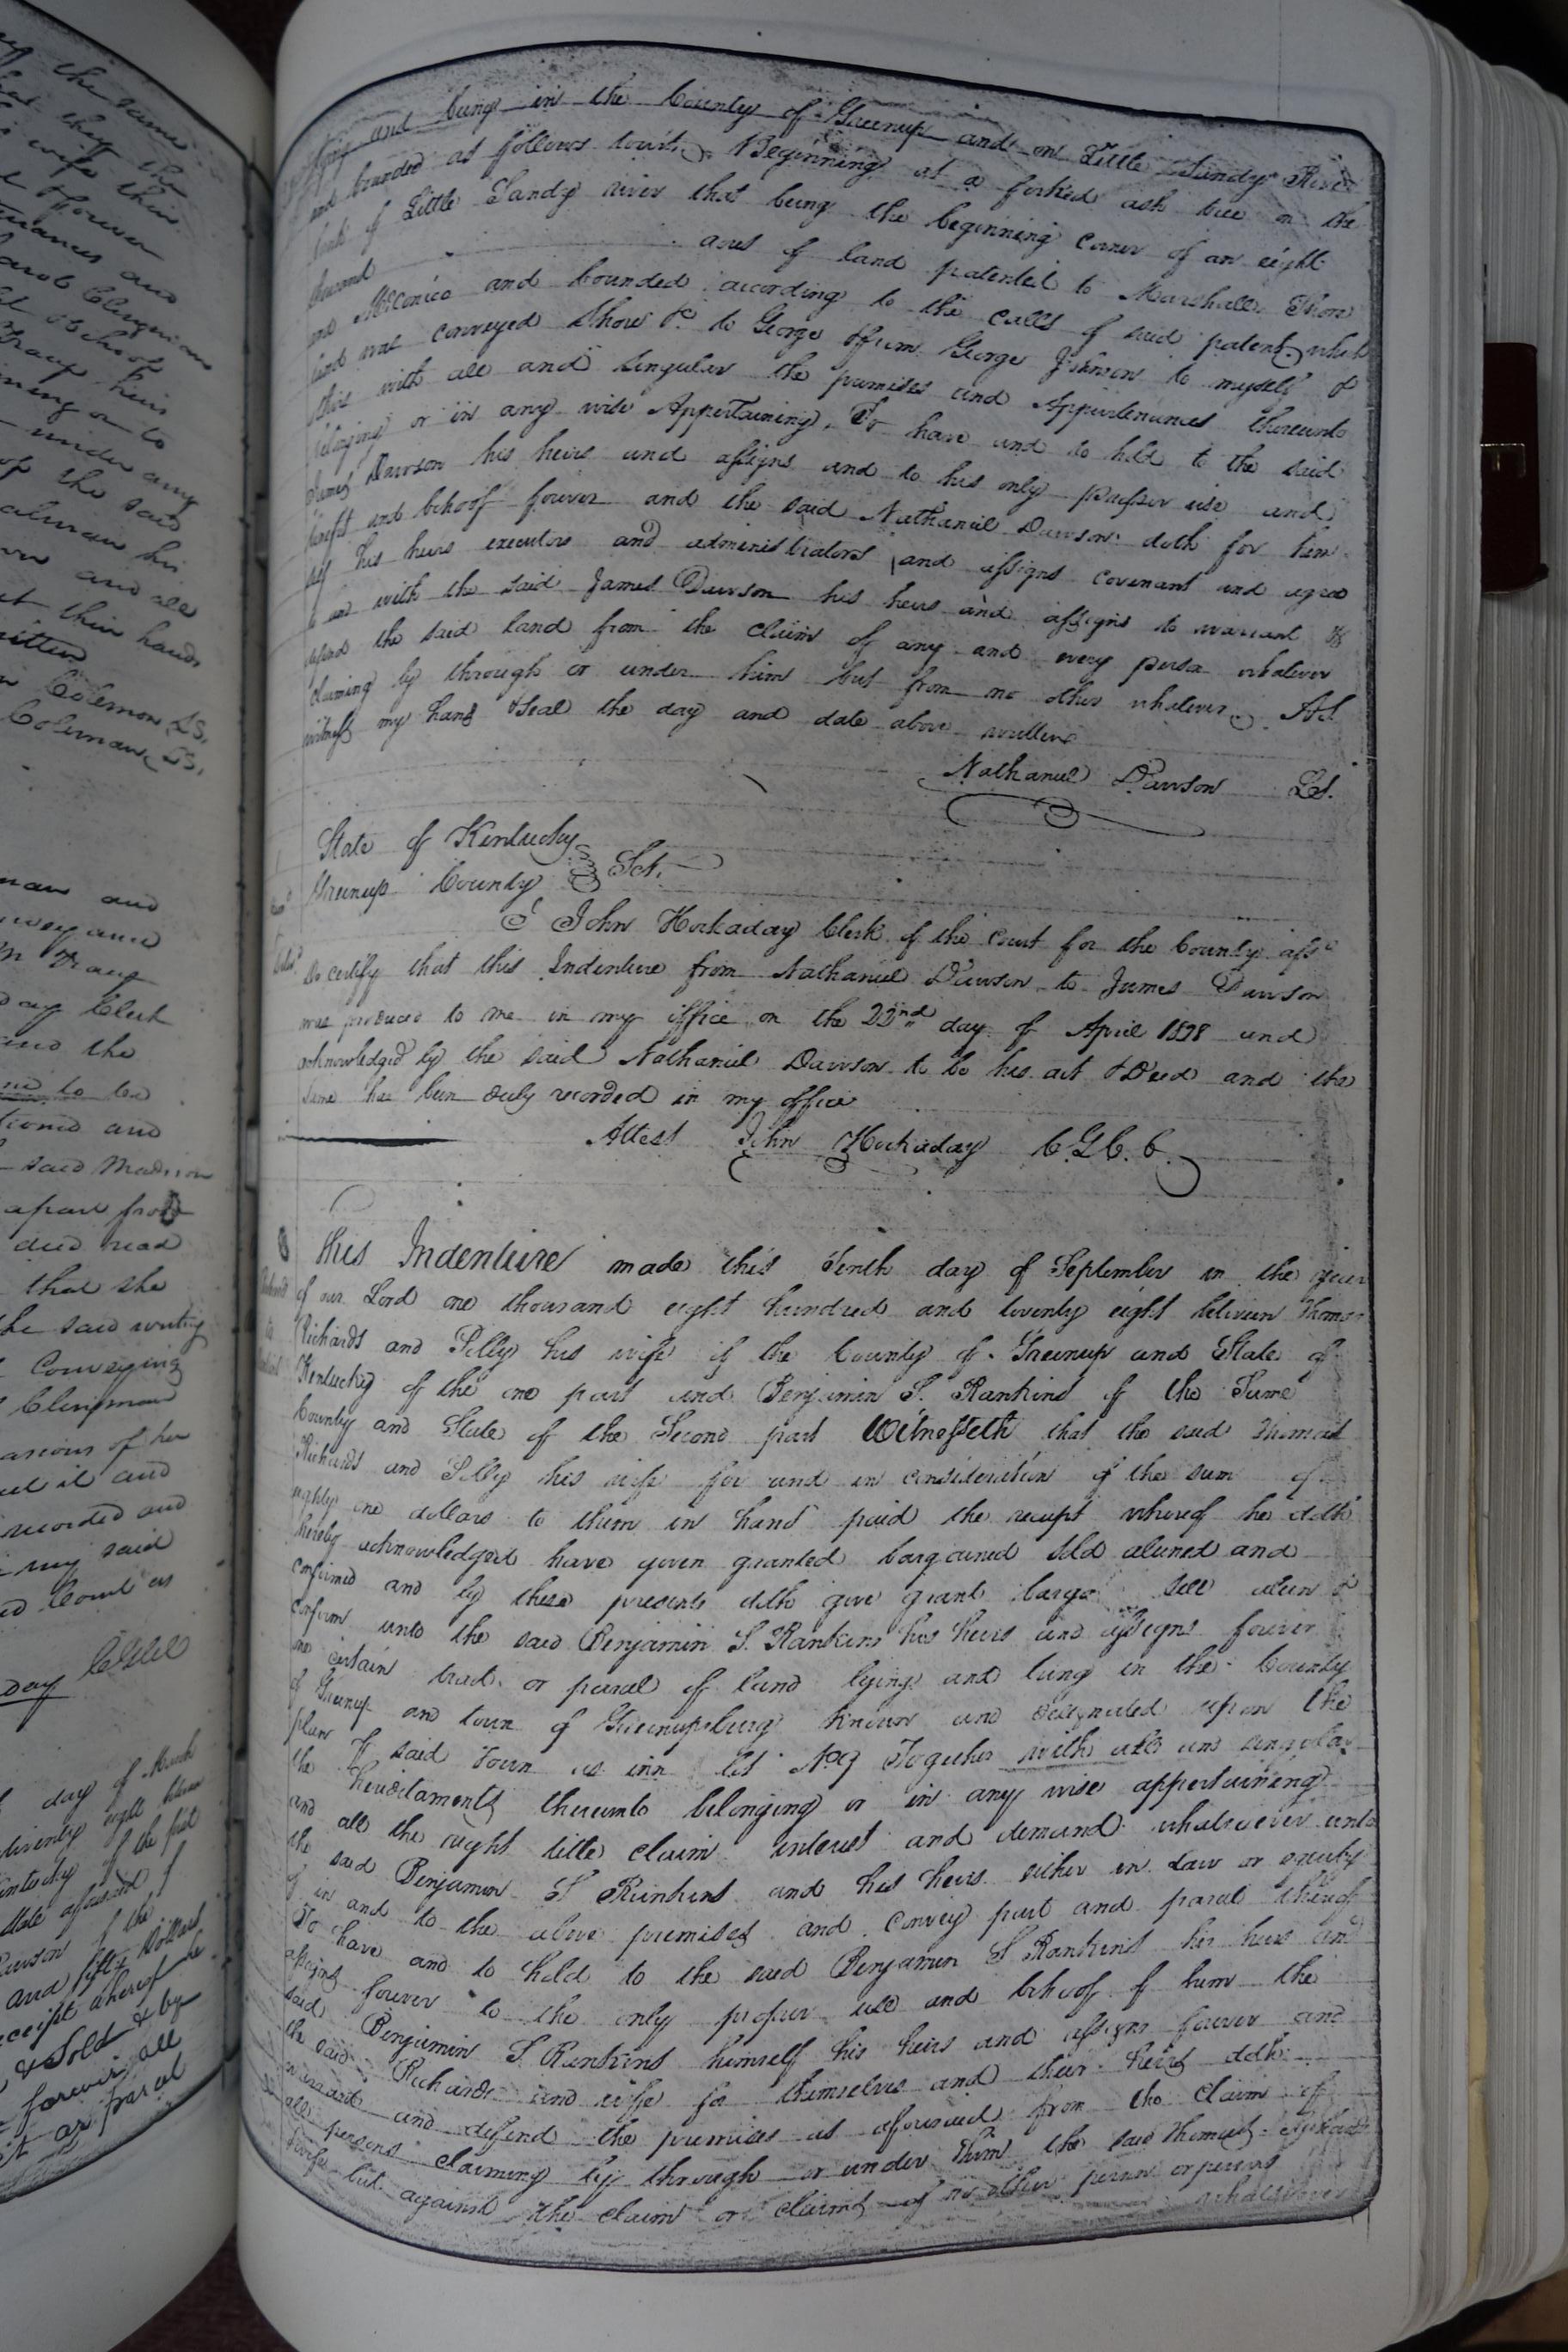 the same
that they the
wife their
forever
and
Jacob Clingman
heirs
or to
under any
of the said
his
and all
their hands
written
Coleman LS.
Coleman LS.
and
and
Clerk
and the
to be
and
said Madison
apart from
deed read
that she
the said writing
Conveying
Clingman
of her
it and
recorded and
my said
Court as
day
day of March
twenty eight
Kentucky of the first
State aforesaid of
Dawson of the
and fifty Dollars
receipt whereof
& Sold & by
forever all
or parcel
lying and being in the County of Greenup and on Little Sandy River
and bounded as follows towit, Beginning at a forked ash tree on the
bank of Little Sandy river that being the beginning corner of an eight
thousand acres of land patented to Marshall, Thore
and McConico and bounded according to the calls of said patent, which
land was conveyed Thore &c to George from George Johnson to myself &
this with all and singular the premises and Appurtenances thereunto
belonging or in any wise Appertaining, To have and to hold to the said
James Dawson his heirs and assigns and to his only proper use and
benefit and behoof forever and the said Nathaniel Dawson doth for him
self his heirs executors and administrators and assigns covenant and agree
to and with the said James Dawson his heirs and assigns to warrant &
defend the said land from the claim of any and every person whatever
claiming by through or under him but from no other whatever,
witness my hand & seal the day and date above written
Nathaniel Dawson LS.
State of Kentucky
Greenup County Sct.
I John Hockaday Clerk of the court for the County afsd
do certify that this Indenture from Nathaniel Dawson to James Dawson
was produced to me in my office on the 22nd day of April 1828 and
acknowledged by the said Nathaniel Dawson to be his act & Deed and the
same has been duly recorded in my office
Attest John Hockaday C.G.C.C.
This Indenture made this Tenth day of September in the year
of our Lord one thousand eight hundred and twenty eight between Thomas
Richards and Polly his wife of the County of Greenup and State of
Kentucky of the one part and Benjamin S. Rankins of the Same
County and State of the Second part Witnesseth that the said Thomas
Richards and Polly his wife for and in consideration of the sum of
eighty one dollars to them in hand paid the receipt whereof he doth
hereby acknowledged have given granted bargained sold aliened and
confirmed and by these presents doth give grant barga sell alien &
confirm unto the said Benjamin S. Rankins his heirs and assigns forever
one certain tract or parcel of land lying and being in the County
of Greenup and town of Greenupsburg known and designated upon the
plan of said Town as inn lot No 9 Together with all and singular
the hereditaments thereunto belonging or in any wise appertaining
and all the right title claim interest and demand whatsoever unto
the said Benjamin S Rankins and his heirs either in Law or equity
of in and to the above premises and convey part and parcel thereof
To have and to hold to the said Benjamin S Rankins his heirs and
assigns forever to the only proper use and behoof of him the
said Benjamin S. Rankins himself his heirs and assigns forever and
the said Richards and wife for themselves and their heirs doth
warrant and defend the premises as aforesaid from the claim of
all persons claiming by through or under them the said Thomas Richards
& wife but against the claim or claims of no other person or persons
whatsoever